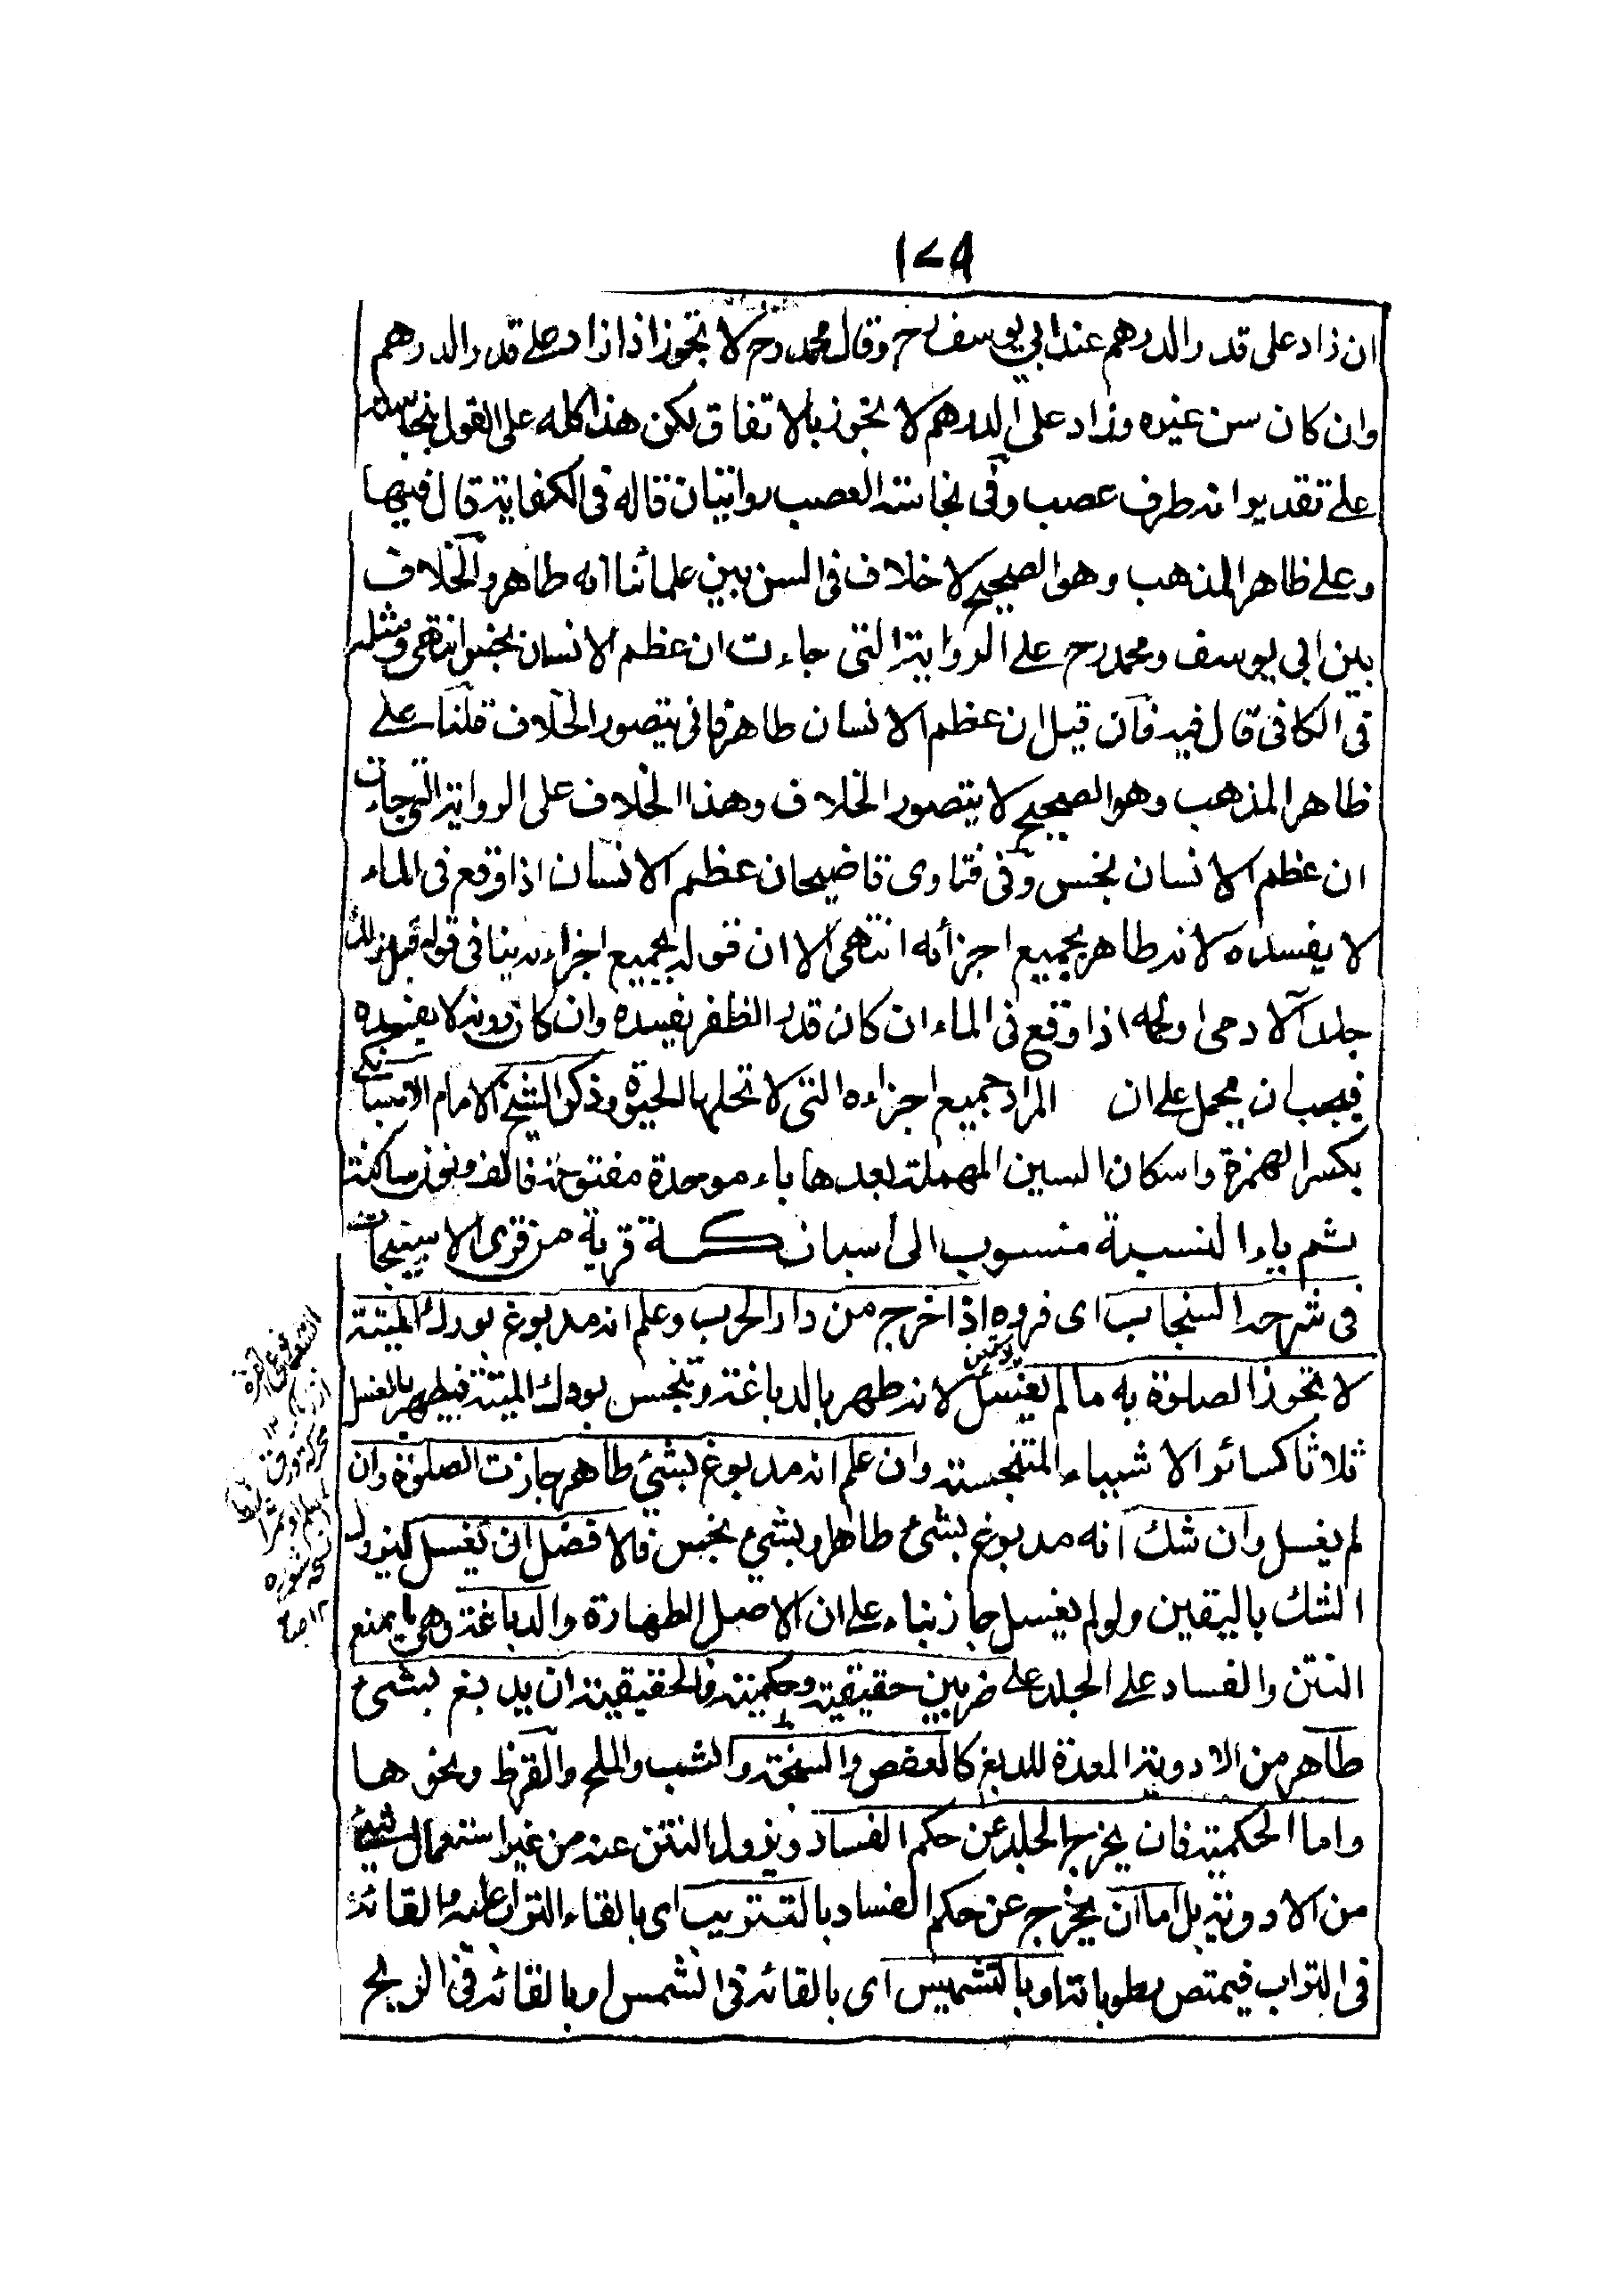 ١٧٩
ان زاد على قدر الدرهم عند ابي يوسف رح وقال محمد رح لا تجوز اذا زاد على قدر الدرهم
وان كان سن غيره وزاد على الدرهم لا يجوز بالاتفاق لكن هذا كله على القول بنجاسته
على تقدير انه طرف عصب وفى نجاسة العصب روايتان قاله فى الكفاية قال فيها
وعلى ظاهر المذهب وهو الصحيح لا خلاف فى السن بين علمائنا انه طاهر والخلاف
بين ابي يوسف ومحمد رح على الرواية التى جاءت ان عظم الانسان نجس انتهى ومثله
فى الكافى قال فيه فان قيل ان عظم الانسان طاهر فانى يتصور الخلاف قلنا على
ظاهر المذهب وهو الصحيح لا يتصور الخلاف وهذا الخلاف على الرواية التى جاءت
ان عظم الانسان نجس وفى فتاوى قاضيخان عظم الانسان اذا وقع فى الماء
لا يفسده لانه طاهر بجميع اجزائه انتهى الا ان قوله بجميع اجزاءه ينافى قوله قبل ذلك
جلد الآدمى او لحمه اذا وقع فى الماء ان كان قدر الظفر يفسده وان كان دونه لا يفسده
فيجب ان يحمل على ان المراد جميع اجزاءه التى لا تحلها الحيوة وذكر الشيخ الامام الاسبانيكتى
بكسر الهمزة واسكان السين المهملة بعدها باء موحدة مفتوحة فالف ونون ساكنة
ثم ياء النسبة منسوب الى اسبانكة قرية من قرى الاسبيجاب
فى شرحه السنجاب اى فروه اذا اخرج من دار الحرب وعلم انه مدبوغ بودك الميتة
لا تجوز الصلوة به ما لم يغسل لانه طهر بالدباغة وتنجس بودك الميتة فيطهر بالغسل
ثلاثا كسائر الاشياء المتنجسة وان علم انه مدبوغ بشئ طاهر جازت الصلوة وان
لم يغسل وان شك انه مدبوغ بشئ طاهر او بشئ نجس فالافضل ان يغسل ليزول
الشك باليقين ولو لم يغسل جاز بناء على ان الاصل الطهارة والدباغة وهى ما يمنع
النتن والفساد على الجلد على ضربين حقيقية وحكمية فالحقيقية ان يدبغ بشئ
طاهر من الادوية المعدة للدبغ كالعفص والسبخة والشب والملح والقرظ ونحوها
واما الحكمية فان يخرج الجلد عن حكم الفساد ويزول النتن عنه من غير استعمال شئ
من الادوية بل اما ان يخرج عن حكم الفساد بالتتريب اى بالقاء التراب عليه او القائه
فى التراب فيمتص رطوباته او بالتشميس اى بالقائه فى الشمس او بالقائه فى الريح